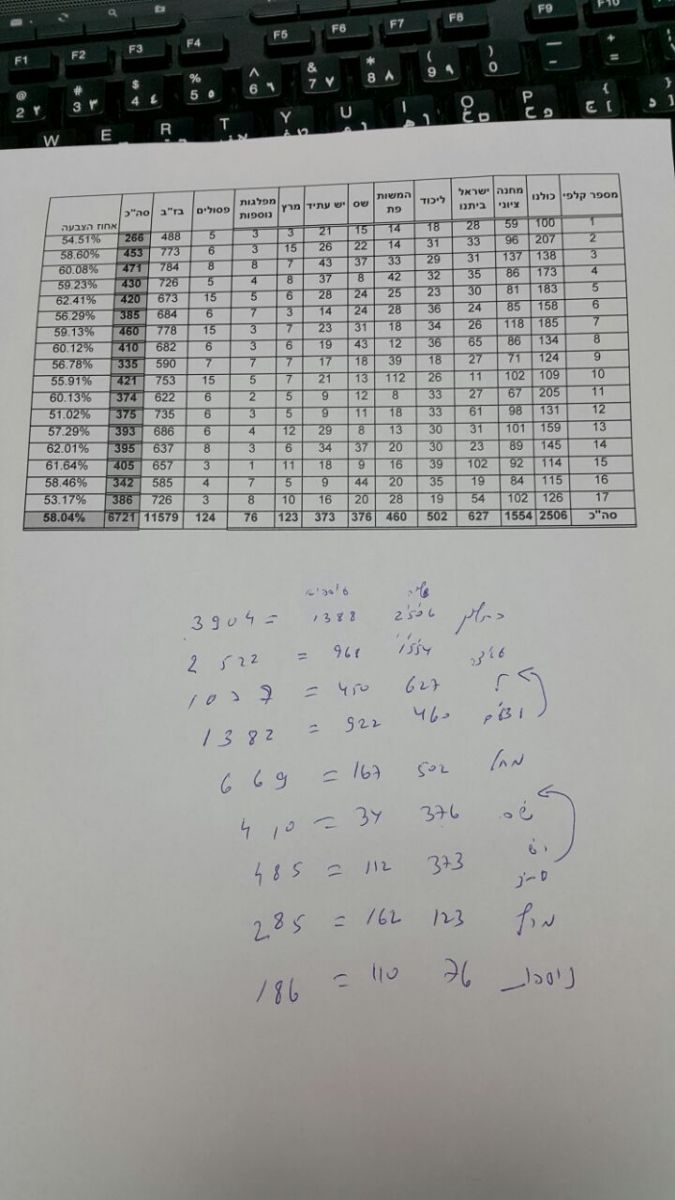 F1 F2 F3 F4 F5 F6 F7 F8 F9 F10
@ 2 # 3 $ 4 % 5 ^ 6 & 7 * 8 ( 9 ) 0 — - + =
W E R T Y U I O P
מספר קלפי כולנו מחנה ציוני ישראל ביתנו ליכוד המשות פת שס יש עתיד מרץ מפלגות נוספות פסולים בז"ב סה"כ אחוז הצבעה
1 100 59 28 18 14 15 21 3 3 5 488 266 54.51%
2 207 96 33 31 14 22 26 15 3 6 773 453 58.60%
3 138 137 31 29 33 37 43 7 8 8 784 471 60.08%
4 173 86 35 32 42 8 37 8 4 5 726 430 59.23%
5 183 81 30 23 25 24 28 6 5 15 673 420 62.41%
6 158 85 24 36 28 24 14 3 7 6 684 385 56.29%
7 185 118 26 34 18 31 23 7 3 15 778 460 59.13%
8 134 86 65 36 12 43 19 6 3 6 682 410 60.12%
9 124 71 27 18 39 18 17 7 7 7 590 335 56.78%
10 109 102 11 26 112 13 21 7 5 15 753 421 55.91%
11 205 67 27 33 8 12 9 5 2 6 622 374 60.13%
12 131 98 61 33 18 11 9 5 3 6 735 375 51.02%
13 159 101 31 30 13 8 29 12 4 6 686 393 57.29%
14 145 89 23 30 20 37 34 6 3 8 637 395 62.01%
15 114 92 102 39 16 9 18 11 1 3 657 405 61.64%
16 115 84 19 35 20 44 9 5 7 4 585 342 58.46%
17 126 102 54 19 28 20 16 10 8 3 726 386 53.17%
סה"כ 2506 1554 627 502 460 376 373 123 76 124 11579 6721 58.04%
2506 1388 = 3904
1554 968 = 2522
627 450 = 1077
460 922 = 1382
מחל 502 167 = 669
שס 376 34 = 410
יש 373 112 = 485
מרץ 123 162 = 285
76 110 = 186